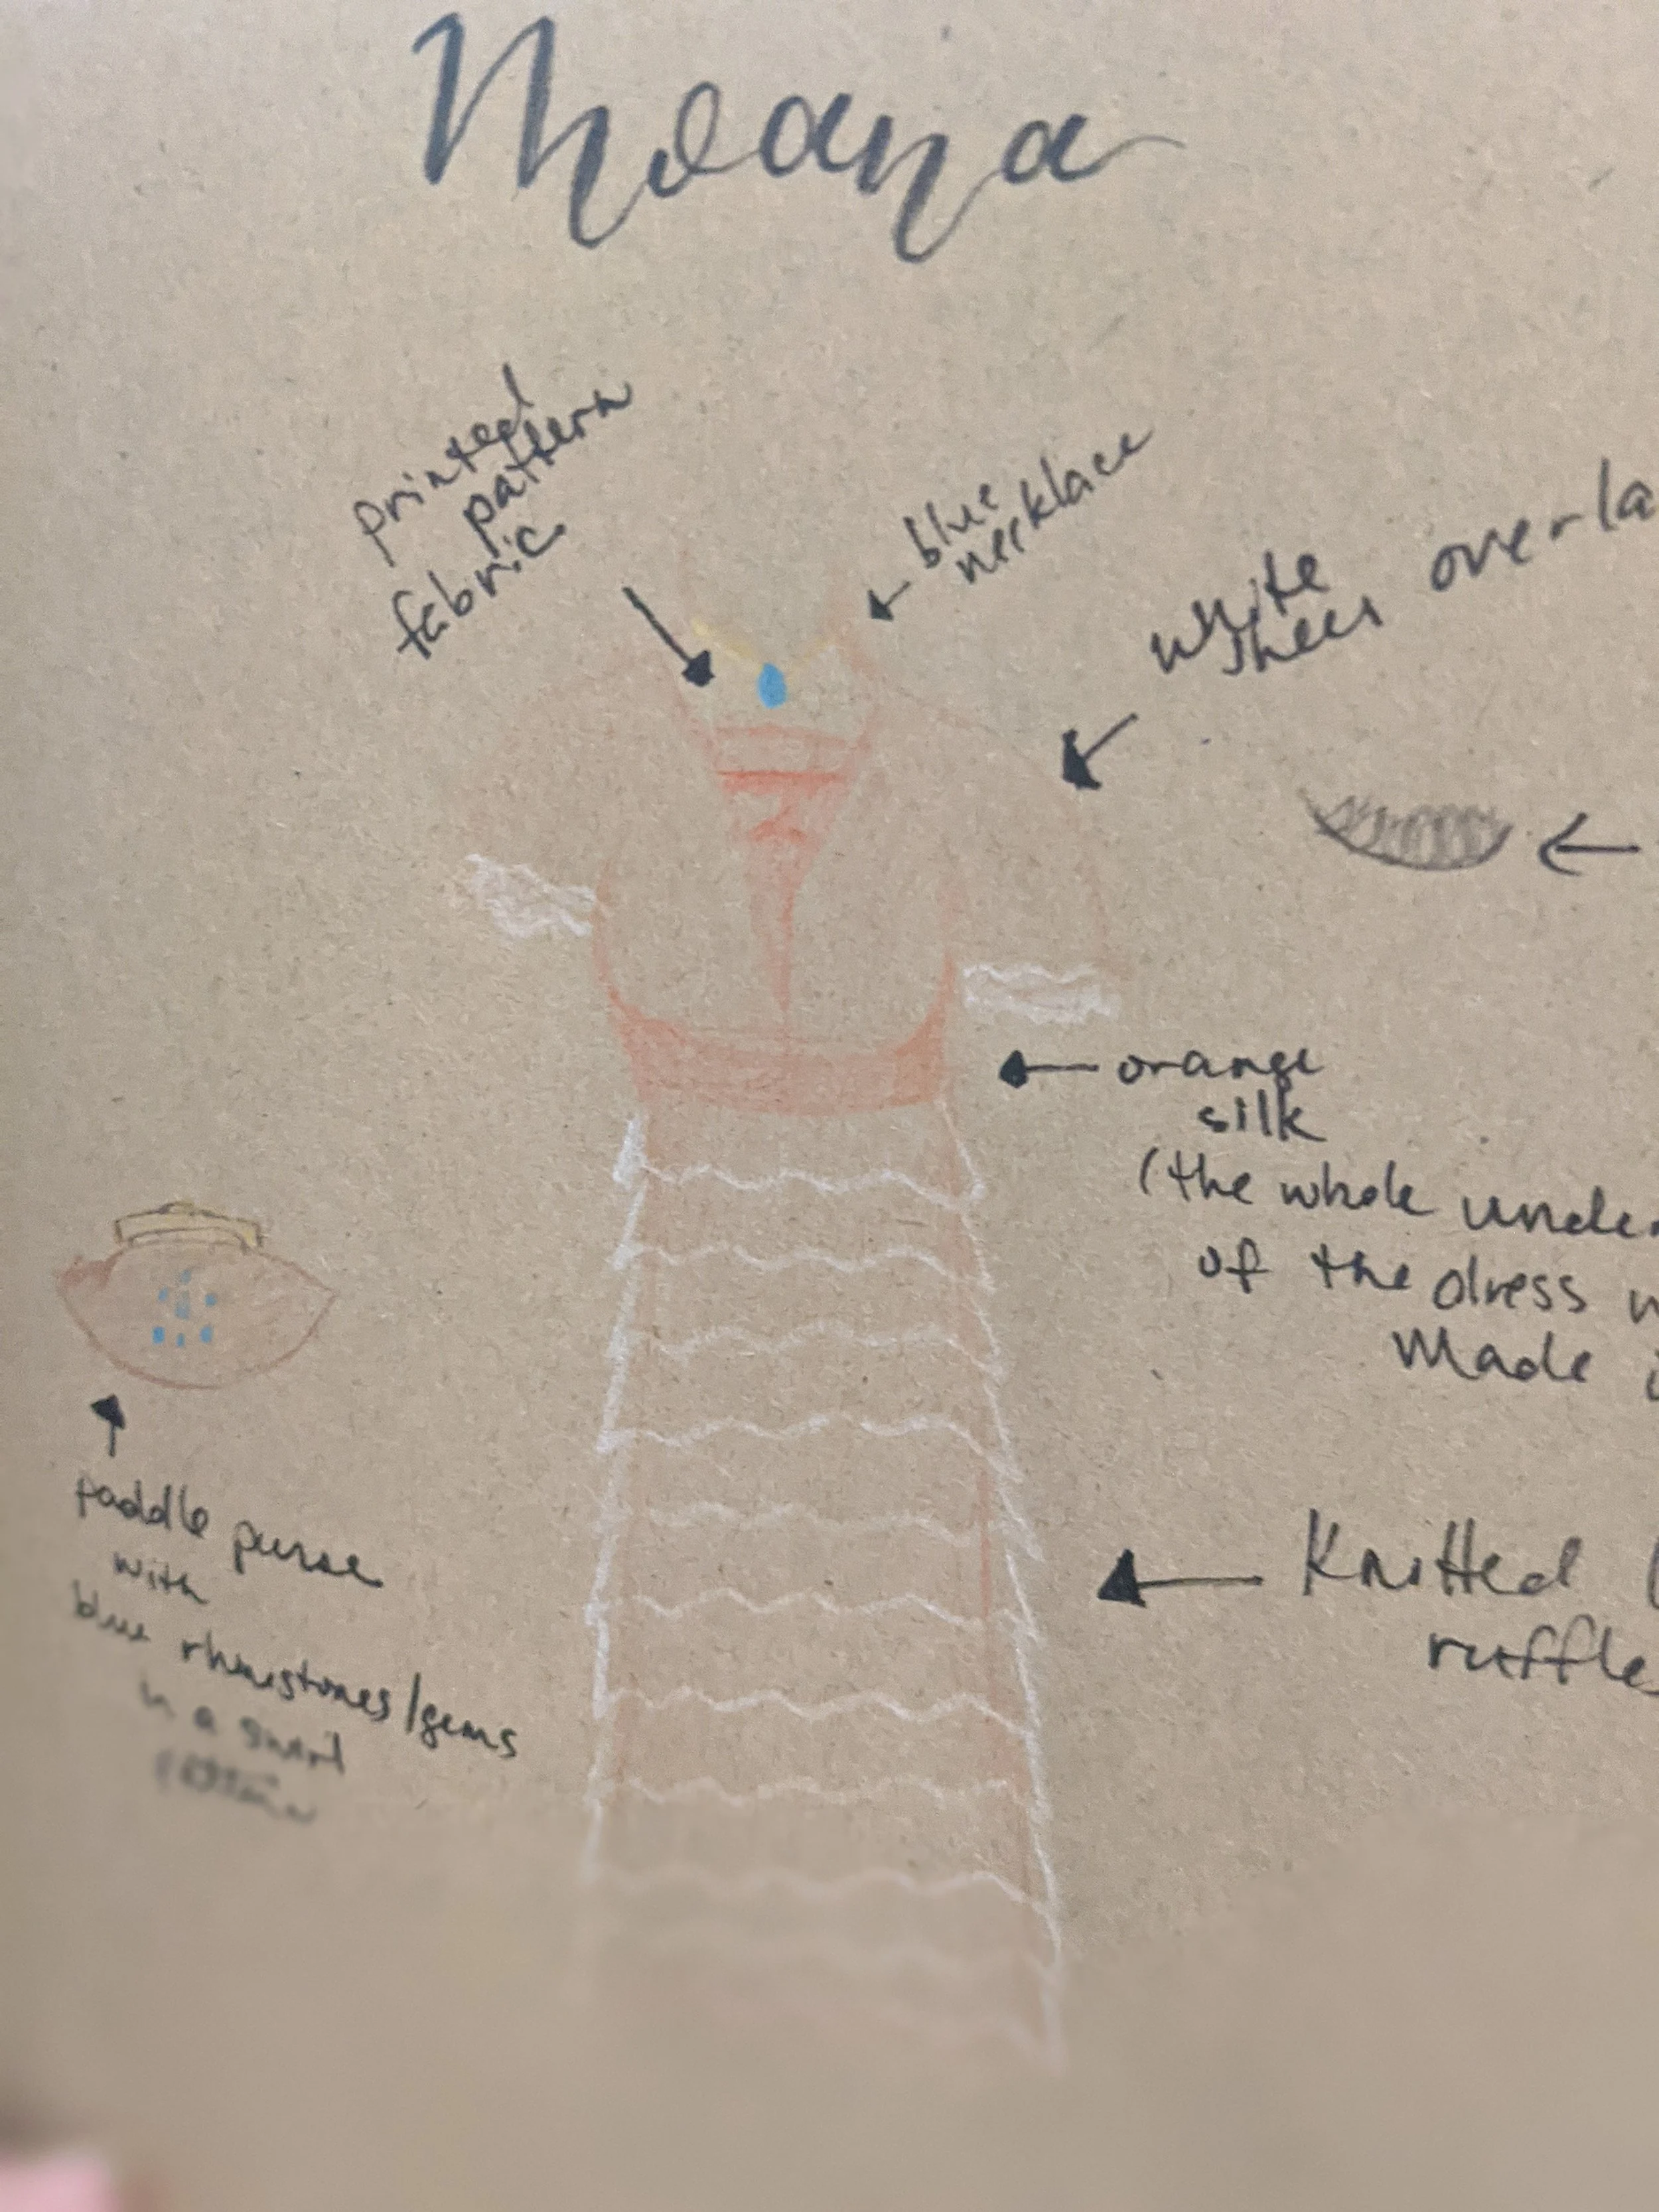 Moana
printed
pattern
fabric
blue
necklace
white overla
sheer
orange
silk
(the whole unde
of the dress
Made
Knitted
ruffle
paddle purse
with
blue rhinestones/gems
in a swirl
pattern